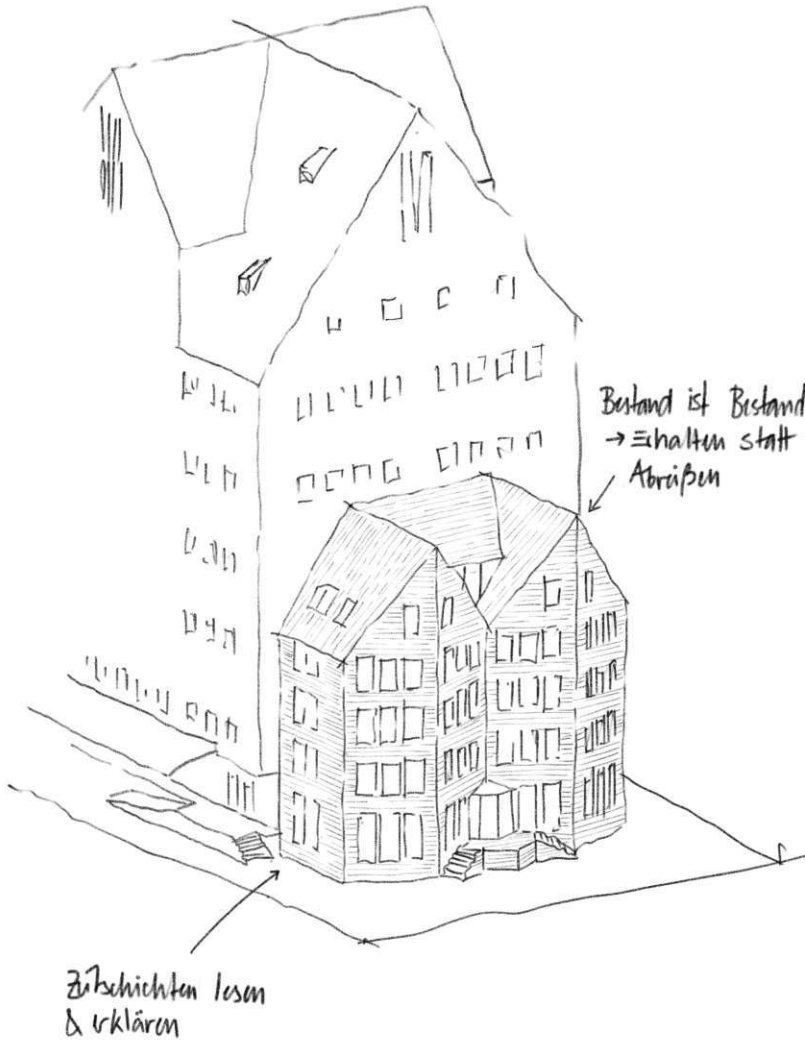 Bestand ist Bestand
→ Erhalten statt
Abreißen
Zeitschichten lesen
& erklären